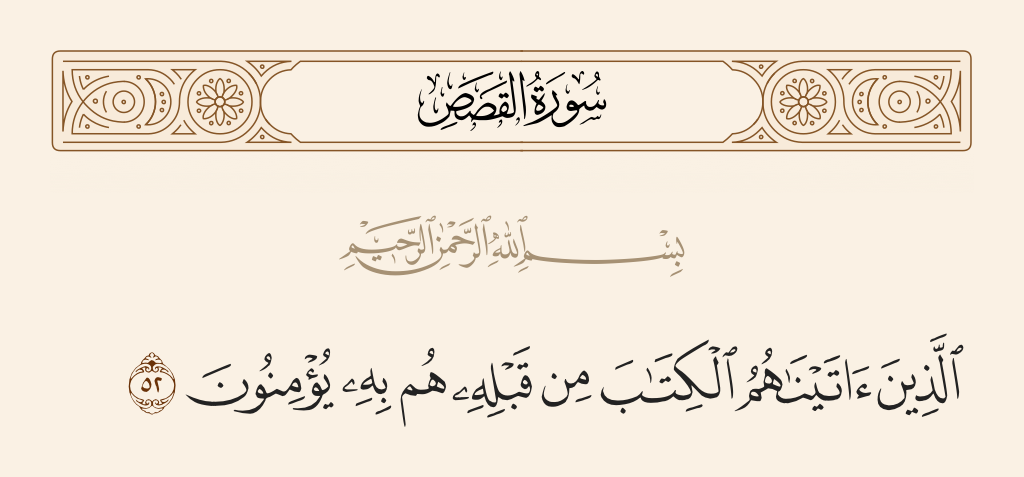 سُورَةُ القَصَصِ
بِسْمِ ٱللَّهِ ٱلرَّحْمَٰنِ ٱلرَّحِيمِ
ٱلَّذِينَ ءَاتَيْنَٰهُمُ ٱلْكِتَٰبَ مِن قَبْلِهِۦ هُم بِهِۦ يُؤْمِنُونَ ٥٢